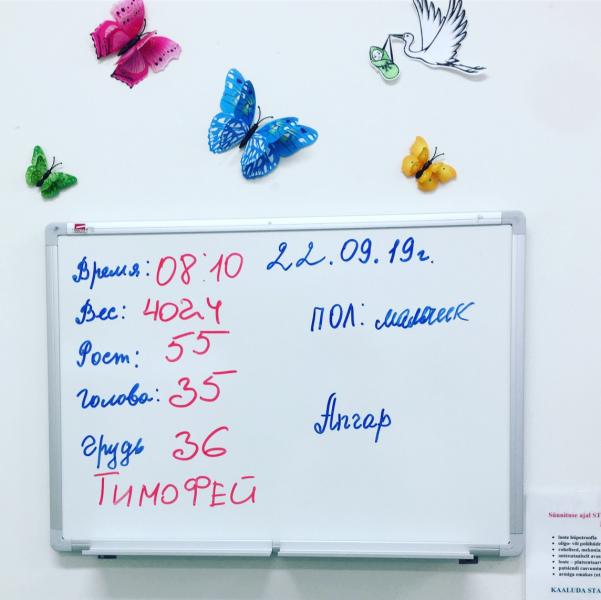 22.09.19г.
Время: 08:10
Вес: 4024
Рост: 55
Голова: 35
Грудь 36
ТИМОФЕЙ
ПОЛ: мальчик
Апгар
Sünnituse ajal
• loote hüpotroofia
KAALUDA